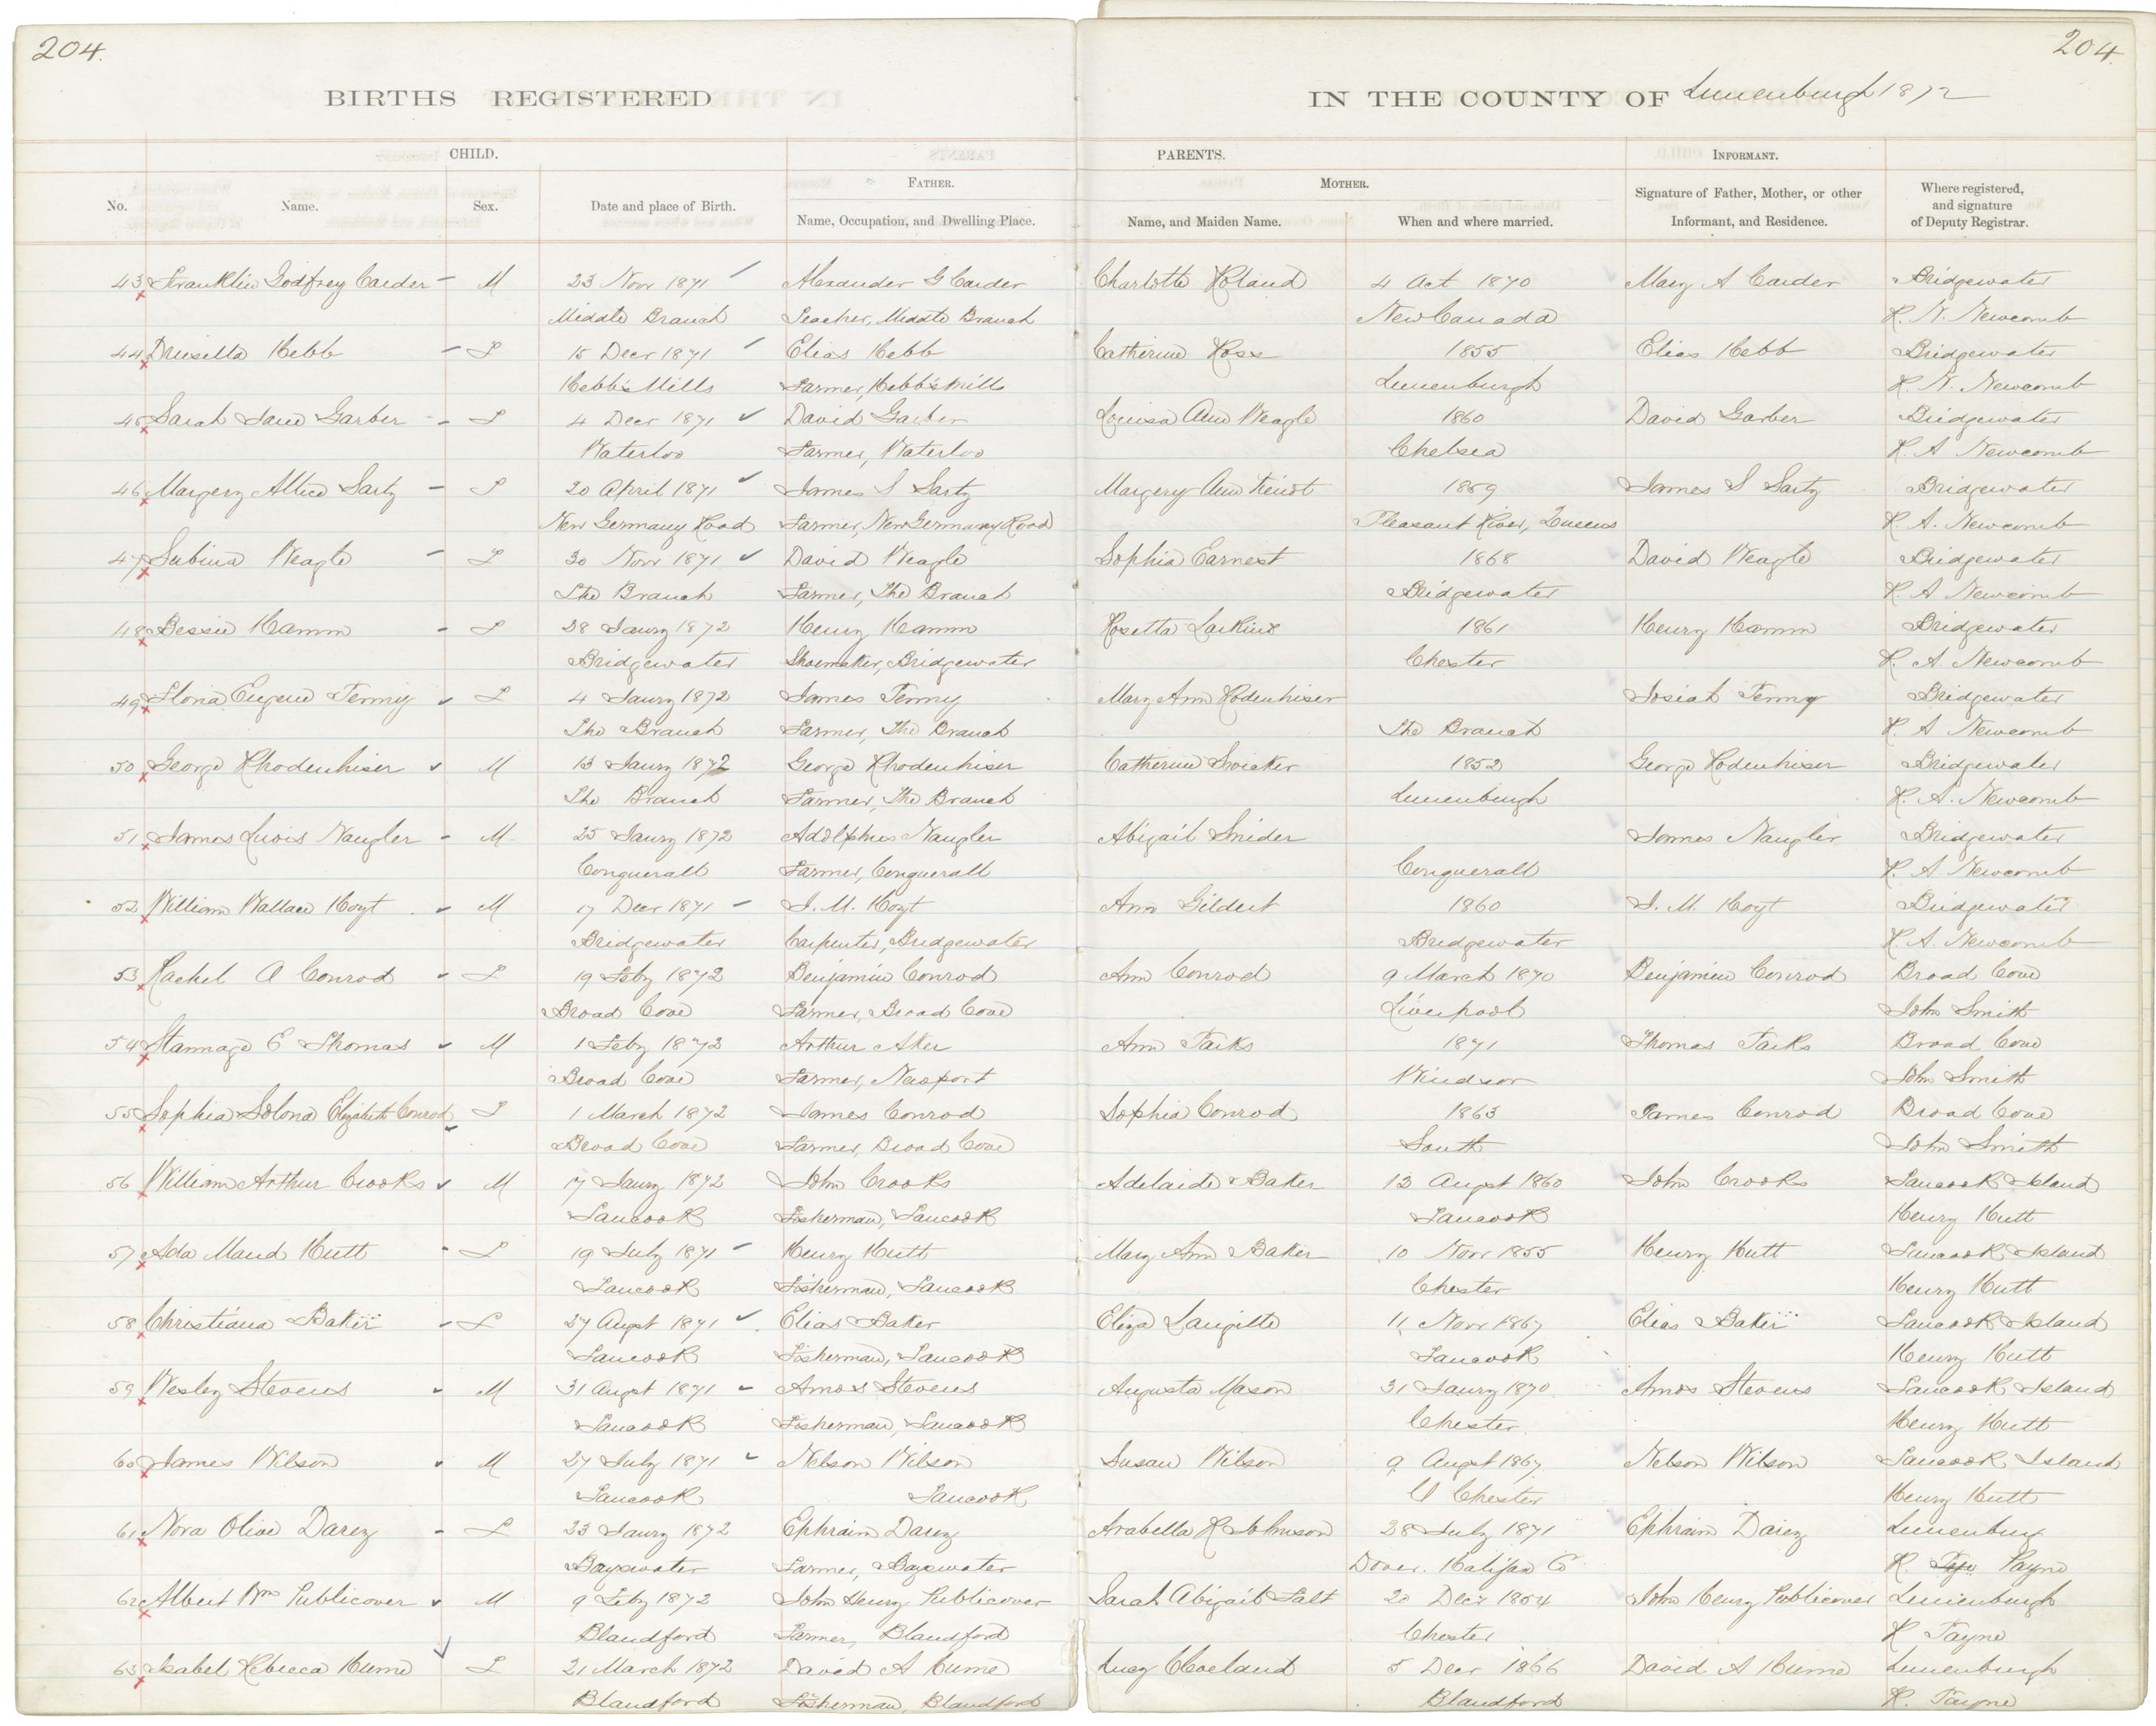 204.
204.
BIRTHS REGISTERED
IN THE COUNTY OF Lunenburgh 1872
CHILD.
PARENTS.
INFORMANT.
No.
Name.
Sex.
Date and place of Birth.
FATHER.
Name, Occupation, and Dwelling Place.
MOTHER.
Name, and Maiden Name.
When and where married.
Signature of Father, Mother, or other
Informant, and Residence.
Where registered,
and signature
of Deputy Registrar.
43 Franklin Godfrey Carder M 23 Novr 1871 Alexander G Carder Charlotte Roland 4 Oct 1870 Mary A Carder Bridgewater
Middle Branch Teacher, Middle Branch New Canada R. N. Newcomb
44 Drusella Hebb F 15 Decr 1871 Elias Hebb Catherine Ross 1855 Elias Hebb Bridgewater
Hebb's Mills Farmer, Hebb's Mills Lunenburgh R. N. Newcomb
45 Sarah Jane Garber F 4 Decr 1871 David Garber Louisa Ann Weagle 1860 David Garber Bridgewater
Waterloo Farmer, Waterloo Chelsea R. A Newcomb
46 Margery Allice Sarty F 20 April 1871 James S Sarty Margery Ann 1869 James S Sarty Bridgewater
New Germany Road Farmer, New Germany Road Pleasant River, Queens R. A. Newcomb
47 Subina Weagle F 30 Novr 1871 David Weagle Sophia Earnest 1868 David Weagle Bridgewater
The Branch Farmer, The Branch Bridgewater R. A Newcomb
48 Bessie Hamm F 28 Jaury 1872 Henry Hamm Rosetta Larkins 1861 Henry Hamm Bridgewater
Bridgewater Shoemaker, Bridgewater Chester R. A. Newcomb
49 Floria Eugene Penny F 4 Jaury 1872 James Penny Mary Ann Rodenhiser Josiah Penny Bridgewater
The Branch Farmer, The Branch The Branch R. A Newcomb
50 George Rhodenhiser M 13 Jaury 1872 George Rhodenhiser Catherine Swicker 1852 George Rodenhiser Bridgewater
The Branch Farmer, The Branch Lunenburgh R. A. Newcomb
51 James Luvis Naugler M 25 Jaury 1872 Adolphus Naugler Abigail Snider James Naugler Bridgewater
Conquerall Farmer, Conquerall Conquerall R. A Newcomb
52 William Wallace Hoyt M 17 Decr 1871 J. M. Hoyt Ann Gildert 1860 J. M. Hoyt Bridgewater
Bridgewater Carpenter, Bridgewater Bridgewater R. A. Newcomb
53 Rachel A Conrod F 19 Feby 1872 Benjamin Conrod Ann Conrod 9 March 1870 Benjamin Conrod Broad Cove
Broad Cove Farmer, Broad Cove Liverpool John Smith
54 Stannage E Thomas M 1 Feby 1872 Arthur Aker Ann Parks 1871 Thomas Parks Broad Cove
Broad Cove Farmer, Newport Windsor John Smith
55 Sophia Solona Elizabeth Conrod F 1 March 1872 James Conrod Sophia Conrod 1863 James Conrod Broad Cove
Broad Cove Farmer, Broad Cove South John Smith
56 William Arthur Crooks M 17 Jaury 1872 John Crooks Adelaide Baker 13 Augst 1860 John Crooks Tancook Island
Tancook Fisherman, Tancook Tancook Henry Hutt
57 Ada Maud Hutt F 19 July 1871 Henry Hutt Mary Ann Baker 10 Novr 1855 Henry Hutt Tancook Island
Tancook Fisherman, Tancook Chester Henry Hutt
58 Christiana Baker F 27 Augst 1871 Elias Baker Eliza Langille 11 Novr 1867 Elias Baker Tancook Island
Tancook Fisherman, Tancook Tancook Henry Hutt
59 Wesley Stevens M 31 Augst 1871 Amos Stevens Augusta Mason 31 Jaury 1870 Amos Stevens Tancook Island
Tancook Fisherman, Tancook Chester Henry Hutt
60 James Wilson M 27 July 1871 Nelson Wilson Susan Wilson 9 Augst 1867 Nelson Wilson Tancook Island
Tancook Tancook Chester Henry Hutt
61 Nora Olive Darey F 23 Jaury 1872 Ephraim Darey Arabella R Johnson 28 July 1871 Ephraim Darey Lunenburg
Bayswater Farmer, Bayswater Dover. Halifax Co R. Payne
62 Albert Wm Publicover M 9 Feby 1872 John Henry Publicover Sarah Abigail 20 Decr 1854 John Henry Publicover Lunenburgh
Blandford Farmer, Blandford Chester R Payne
63 Isabel Rebecca Hume F 21 March 1872 David A Hume Lucy Cleveland 5 Decr 1866 David A Hume Lunenburgh
Blandford Fisherman, Blandford Blandford R. Payne